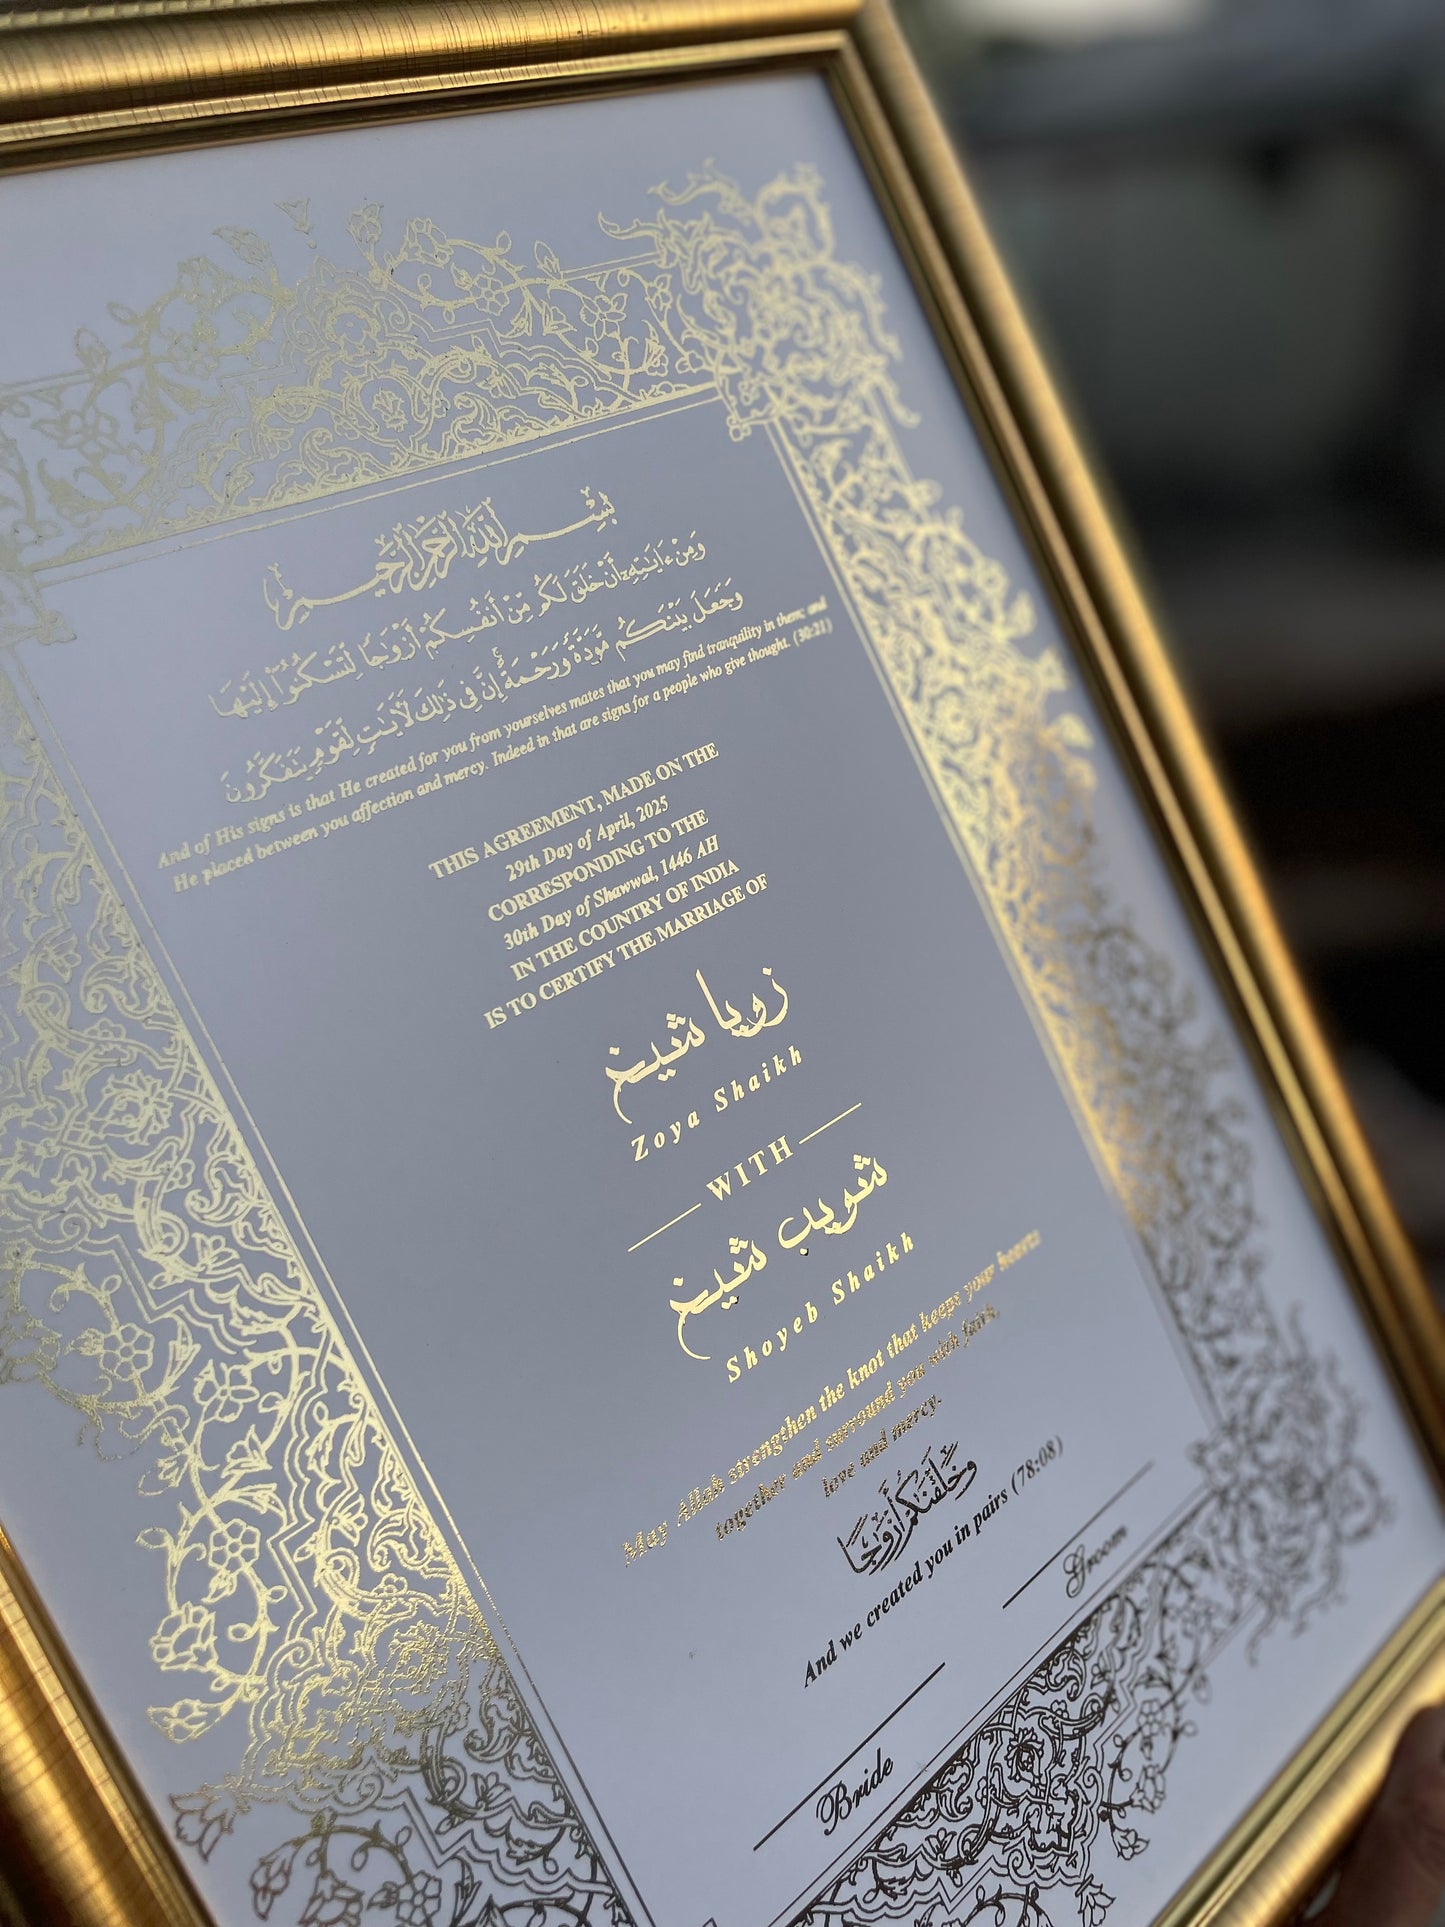 بِسْمِ اللَّهِ الرَّحْمَٰنِ الرَّحِيمِ
وَمِنْ ءَايَٰتِهِۦٓ أَنْ خَلَقَ لَكُم مِّنْ أَنفُسِكُمْ أَزْوَٰجًا لِّتَسْكُنُوٓا۟ إِلَيْهَا
وَجَعَلَ بَيْنَكُم مَّوَدَّةً وَرَحْمَةً ۚ إِنَّ فِى ذَٰلِكَ لَـَٔايَٰتٍ لِّقَوْمٍ يَتَفَكَّرُونَ
And of His signs is that He created for you from yourselves mates that you may find tranquility in them; and
He placed between you affection and mercy. Indeed in that are signs for a people who give thought. (30:21)
THIS AGREEMENT, MADE ON THE
29th Day of April, 2025
CORRESPONDING TO THE
30th Day of Shawwal, 1446 AH
IN THE COUNTRY OF INDIA
IS TO CERTIFY THE MARRIAGE OF
زويا شيخ
Zoya Shaikh
WITH
شويب شيخ
Shoyeb Shaikh
May Allah strengthen the knot that keeps your hearts
together and surround you with faith,
love and mercy.
وَخَلَقْنَٰكُمْ أَزْوَٰجًا
And we created you in pairs (78:08)
Groom
Bride